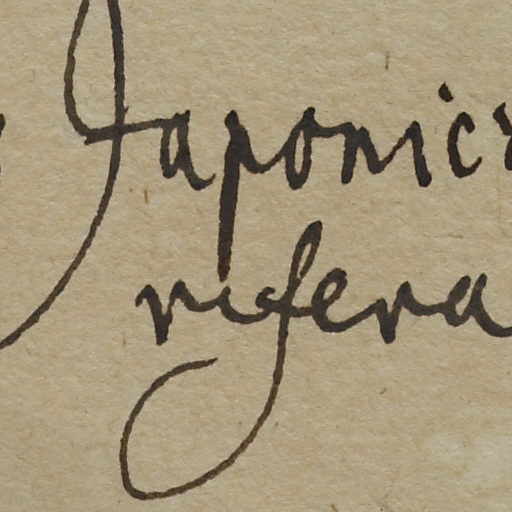 Japonic
rifera